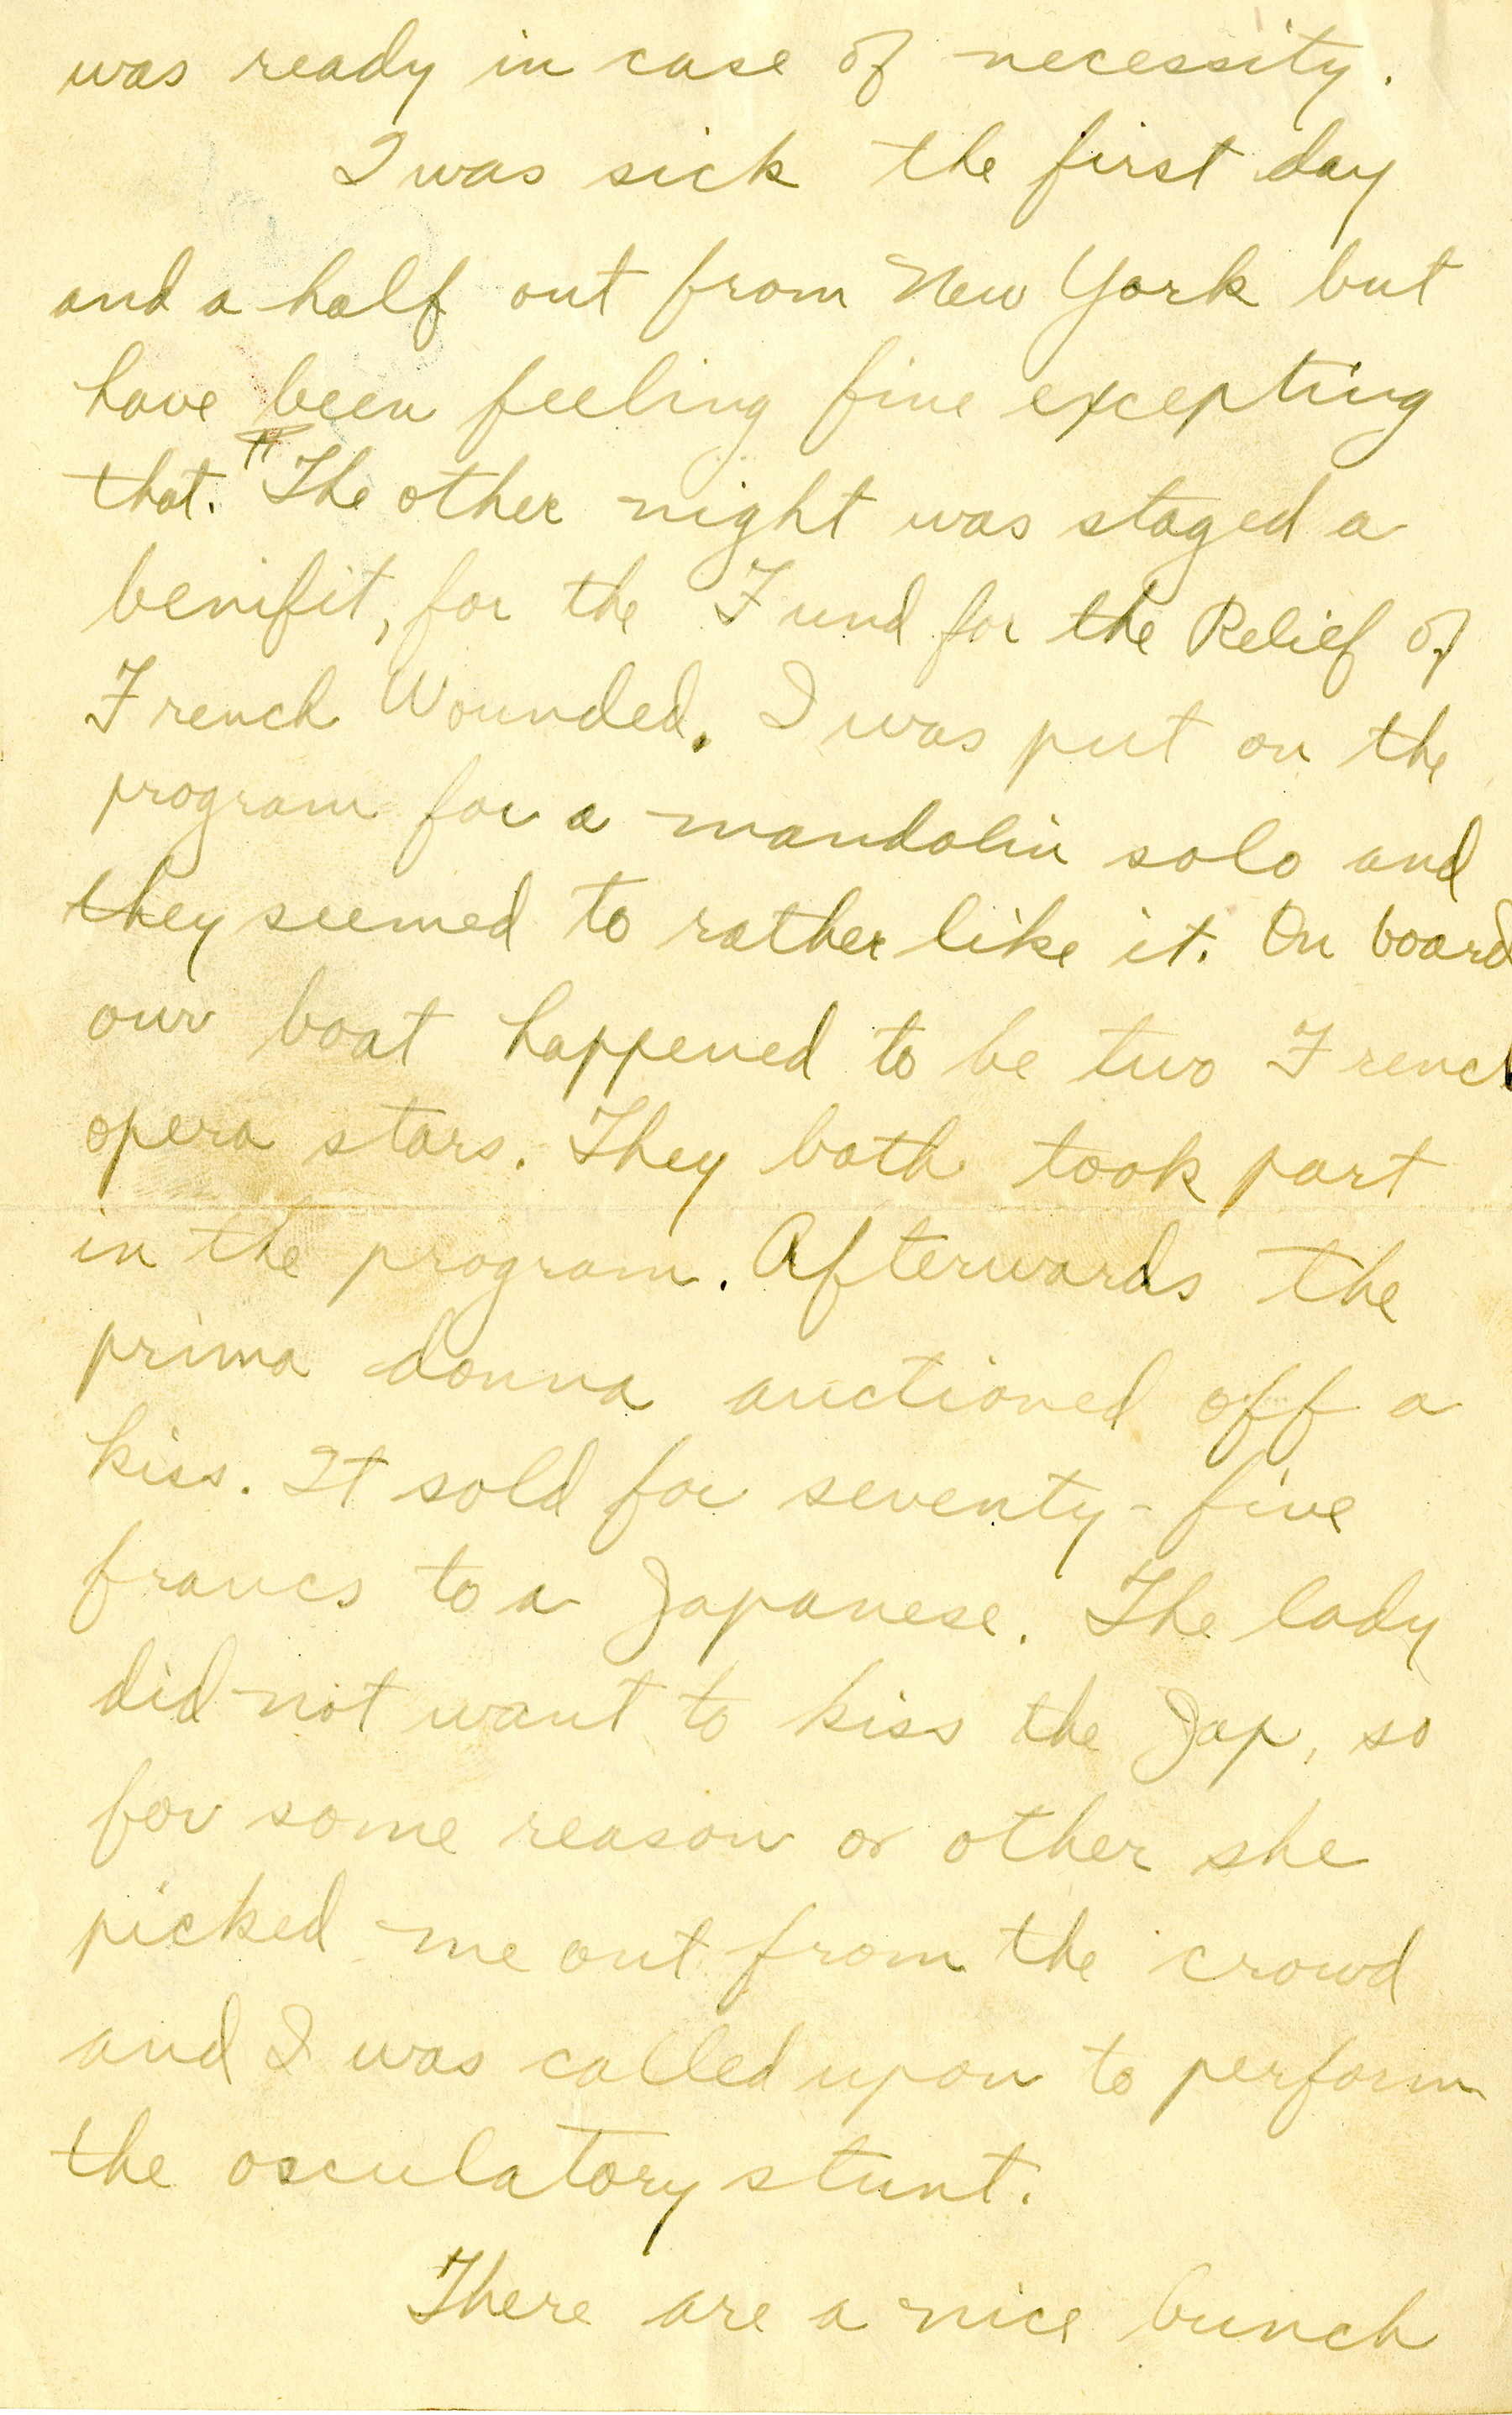 was ready in case of necessity.
I was sick the first day
and a half out from New York but
have been feeling fine excepting
that. ¶ The other night was staged a
benifit, for the Fund for the Relief of
French Wounded. I was put on the
program for a mandolin solo and
they seemed to rather like it. On board
our boat happened to be two French
opera stars. They both took part
in the program. Afterwards the
prima donna auctioned off a
kiss. It sold for seventy-five
francs to a Japanese. The lady
did not want to kiss the Jap, so
for some reason or other she
picked me out from the crowd
and I was called upon to perform
the osculatory stunt.
There are a nice bunch